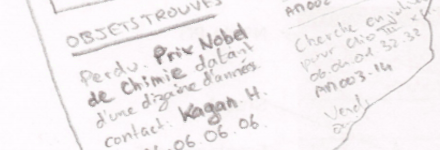 OBJETS TROUVÉS
Perdu. Prix Nobel
de Chimie datant
d'une dizaine d'années.
contact: Kagan. H.
06.06.06.
AN002
Cherche
pour Clio
06.04.04.32.32
AN003.14
Vends